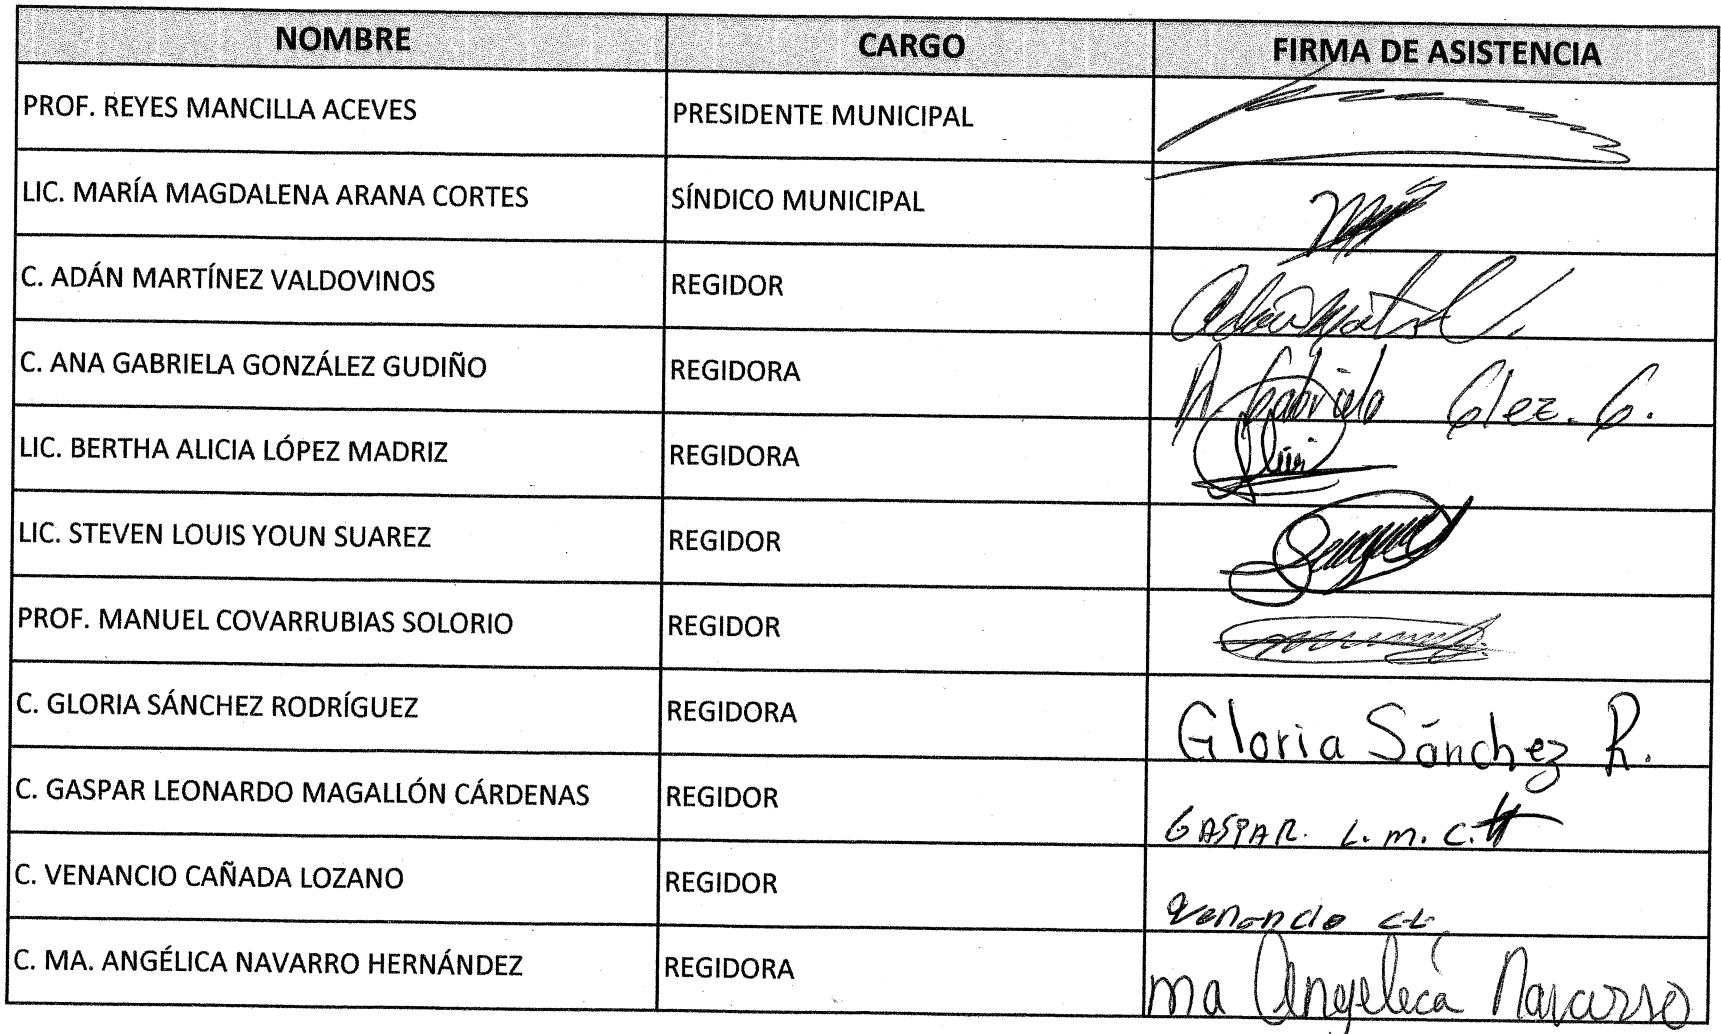 NOMBRE CARGO FIRMA DE ASISTENCIA
PROF. REYES MANCILLA ACEVES PRESIDENTE MUNICIPAL
LIC. MARÍA MAGDALENA ARANA CORTES SÍNDICO MUNICIPAL
C. ADÁN MARTÍNEZ VALDOVINOS REGIDOR
C. ANA GABRIELA GONZÁLEZ GUDIÑO REGIDORA A. Gabriela Glez. G.
LIC. BERTHA ALICIA LÓPEZ MADRIZ REGIDORA
LIC. STEVEN LOUIS YOUN SUAREZ REGIDOR
PROF. MANUEL COVARRUBIAS SOLORIO REGIDOR
C. GLORIA SÁNCHEZ RODRÍGUEZ REGIDORA Gloria Sánchez R.
C. GASPAR LEONARDO MAGALLÓN CÁRDENAS REGIDOR GASPAR. L. M. C.
C. VENANCIO CAÑADA LOZANO REGIDOR Venancio C.L.
C. MA. ANGÉLICA NAVARRO HERNÁNDEZ REGIDORA ma Angeleca Navarro